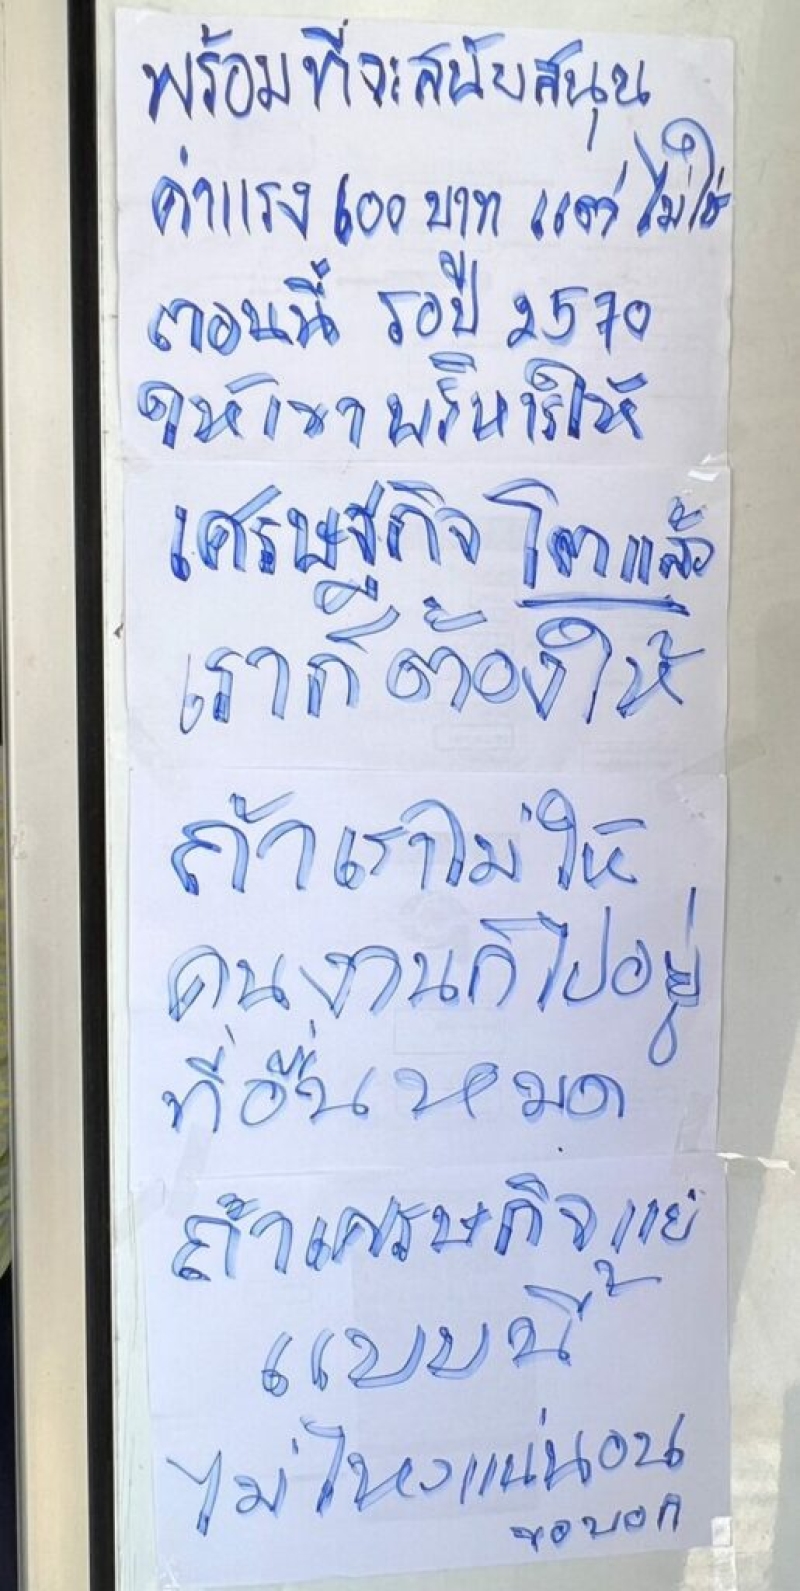 พร้อมที่จะสนับสนุน
ค่าแรง 600 บาท แต่ไม่ใช่
ตอนนี้ รอปี 2570
ให้เขาบริหารให้
เศรษฐกิจ โตแล้ว
เราก็ต้องให้
ถ้าเราไม่ให้
คนงานก็ไปอยู่
ที่อื่นหมด
ถ้าเศรษกิจแย่
แบบนี้
ไม่ไหวแน่นอน
ขอบอก